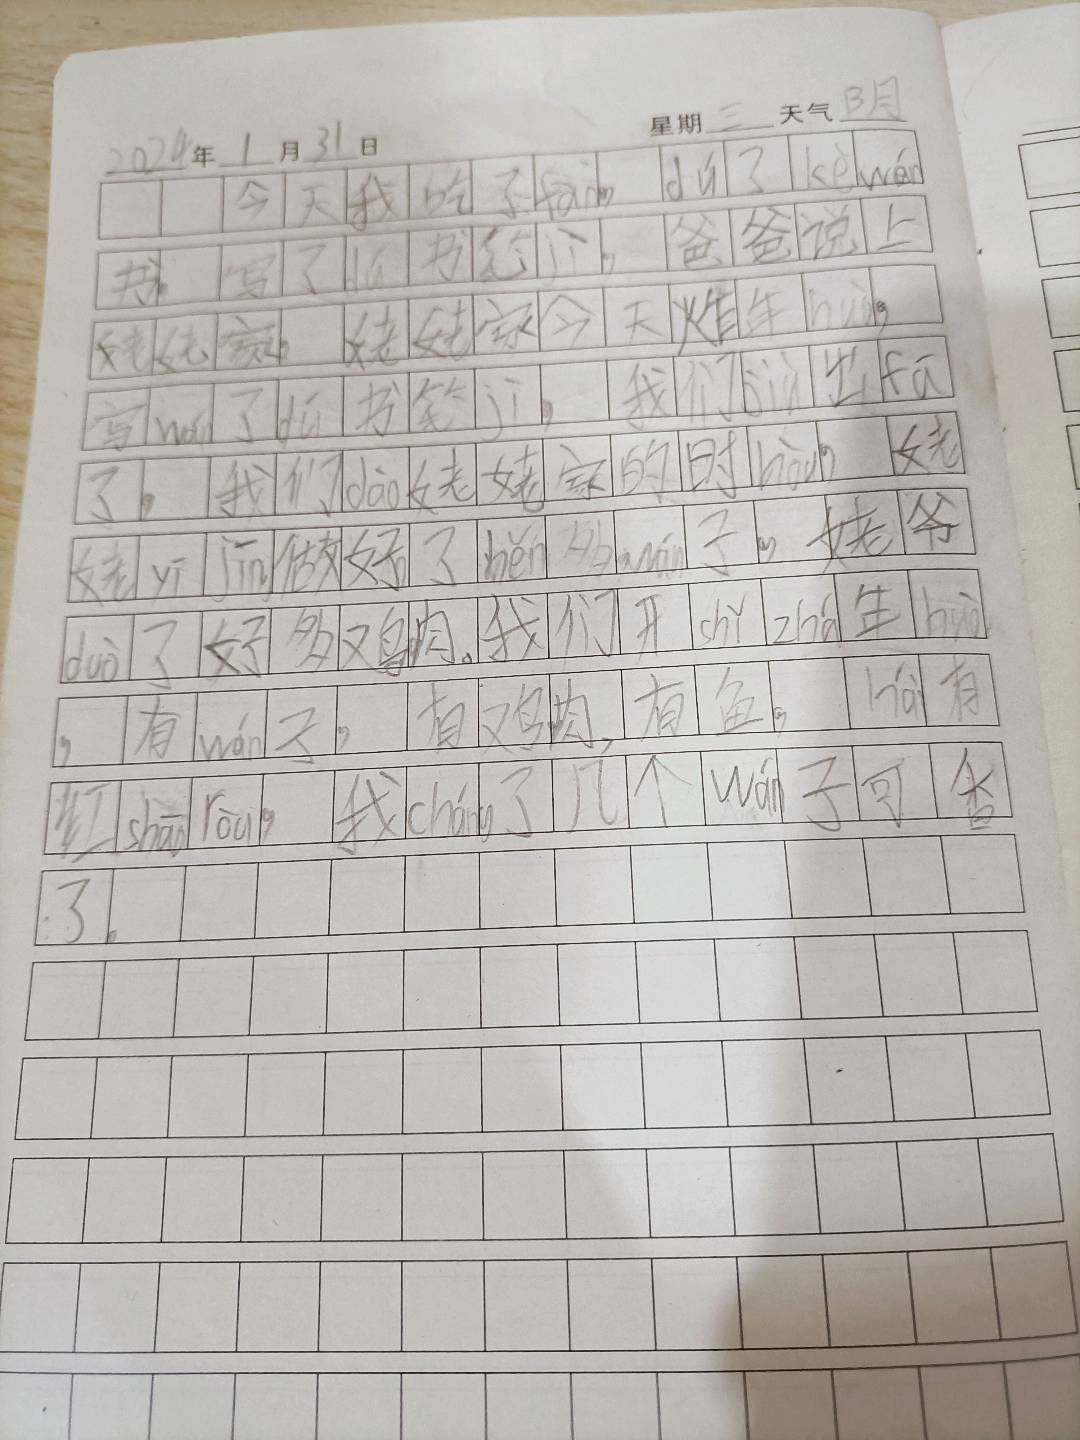 2024年1月31日 星期三 天气 明
今天我吃了fàn，dú了kèwén
书。写了dú书笔jì，爸爸说上
姥姥家。姥姥家今天炸年huò，
写wán了dú书笔jì，我们jiù出fā
了，我们dào姥姥家的时hòu，姥
姥yǐjīn做好了hěn多wán子。姥爷
duò了好多鸡肉。我们开shǐzhá年huò
，有wán子，有鸡肉，有鱼，hái有
红shāoròu，我cháng了几个wán子可香
了。